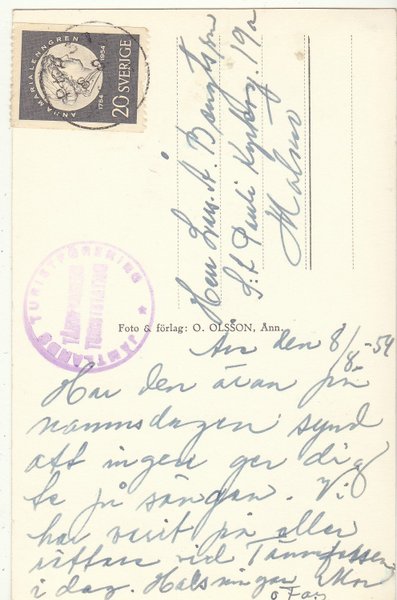 ANNA MARIA LENNGREN
1754 1954
20 SVERIGE
Herr Lars. A. Bengtsson
S:t Pauli Kyrkog. 19a
Malmö
JÄMTLANDS TURISTFÖRENING
TÄNNFORSENS
TURISTSTATION
Foto & förlag: O. OLSSON, Ånn.
Ån den 8/8-54
Har den äran på
namnsdagen synd
att ingen ger dig
te på sängen. Vi
har varit på eller
rättare vid Tännforsen
i dag. Hälsningar Mor
o Far